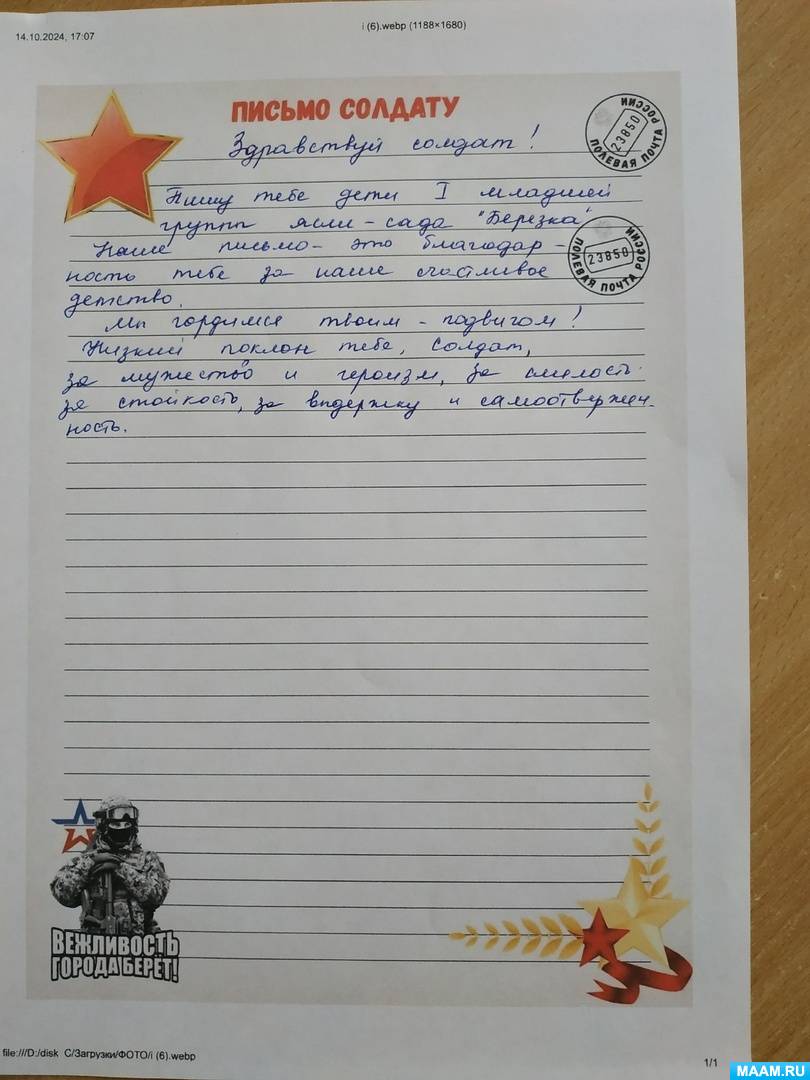 14.10.2024, 17:07
i (6).webp (1188×1680)
ПИСЬМО СОЛДАТУ
Здравствуй солдат!
ПОЛЕВАЯ ПОЧТА РОССИИ
23850
Пишут тебе дети I младшей
группы ясли-сада "Березка"
ПОЛЕВАЯ ПОЧТА РОССИИ
23850
Наше письмо - это благодар-
ность тебе за наше счастливое
детство.
Мы гордимся твоим - подвигом!
Низкий поклон тебе, солдат,
за мужество и героизм, за смелость
за стойкость, за выдержку и самоотвержен-
ность.
ВЕЖЛИВОСТЬ
ГОРОДА БЕРЁТ!
file:///D:/disk C/Загрузки/ФОТО/i (6).webp
1/1
MAAM.RU